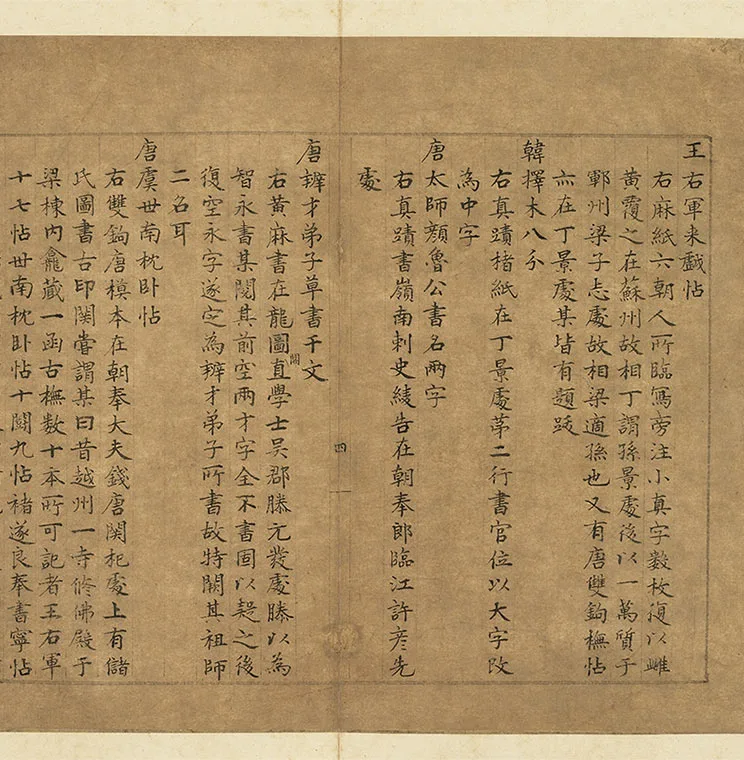 王右軍来戲帖
右麻紙六朝人所臨寫旁注小真字數枚復以雌
黃霞之在蘇州故相丁謂孫景處後以一萬質于
鄆州梁子志處故相梁適孫也又有唐雙鉤橅帖
亦在丁景處某皆有題跋
韓擇木八分
右真蹟楮紙在丁景處第二行書官位以大字改
為中字
唐太師顏魯公書名兩字
右真蹟書嶺南刺史綾告在朝奉郎臨江許彥先
處
四
唐辯才弟子草書千文
右黃麻書在龍圖閣直學士吳郡滕元發處滕以為
智永書某閱其前空兩才字全不書固以疑之後
復空永字遂定為辯才弟子所書故特闕其祖師
二名耳
唐虞世南枕卧帖
右雙鉤唐模本在朝奉大夫錢唐関杞處上有儲
氏圖書古印関嘗謂某曰昔越州一寺修佛殿于
梁棟內龕藏一函古橅數十本所可記者王右軍
十七帖世南枕卧帖十闕九帖褚遂良奉書寧帖